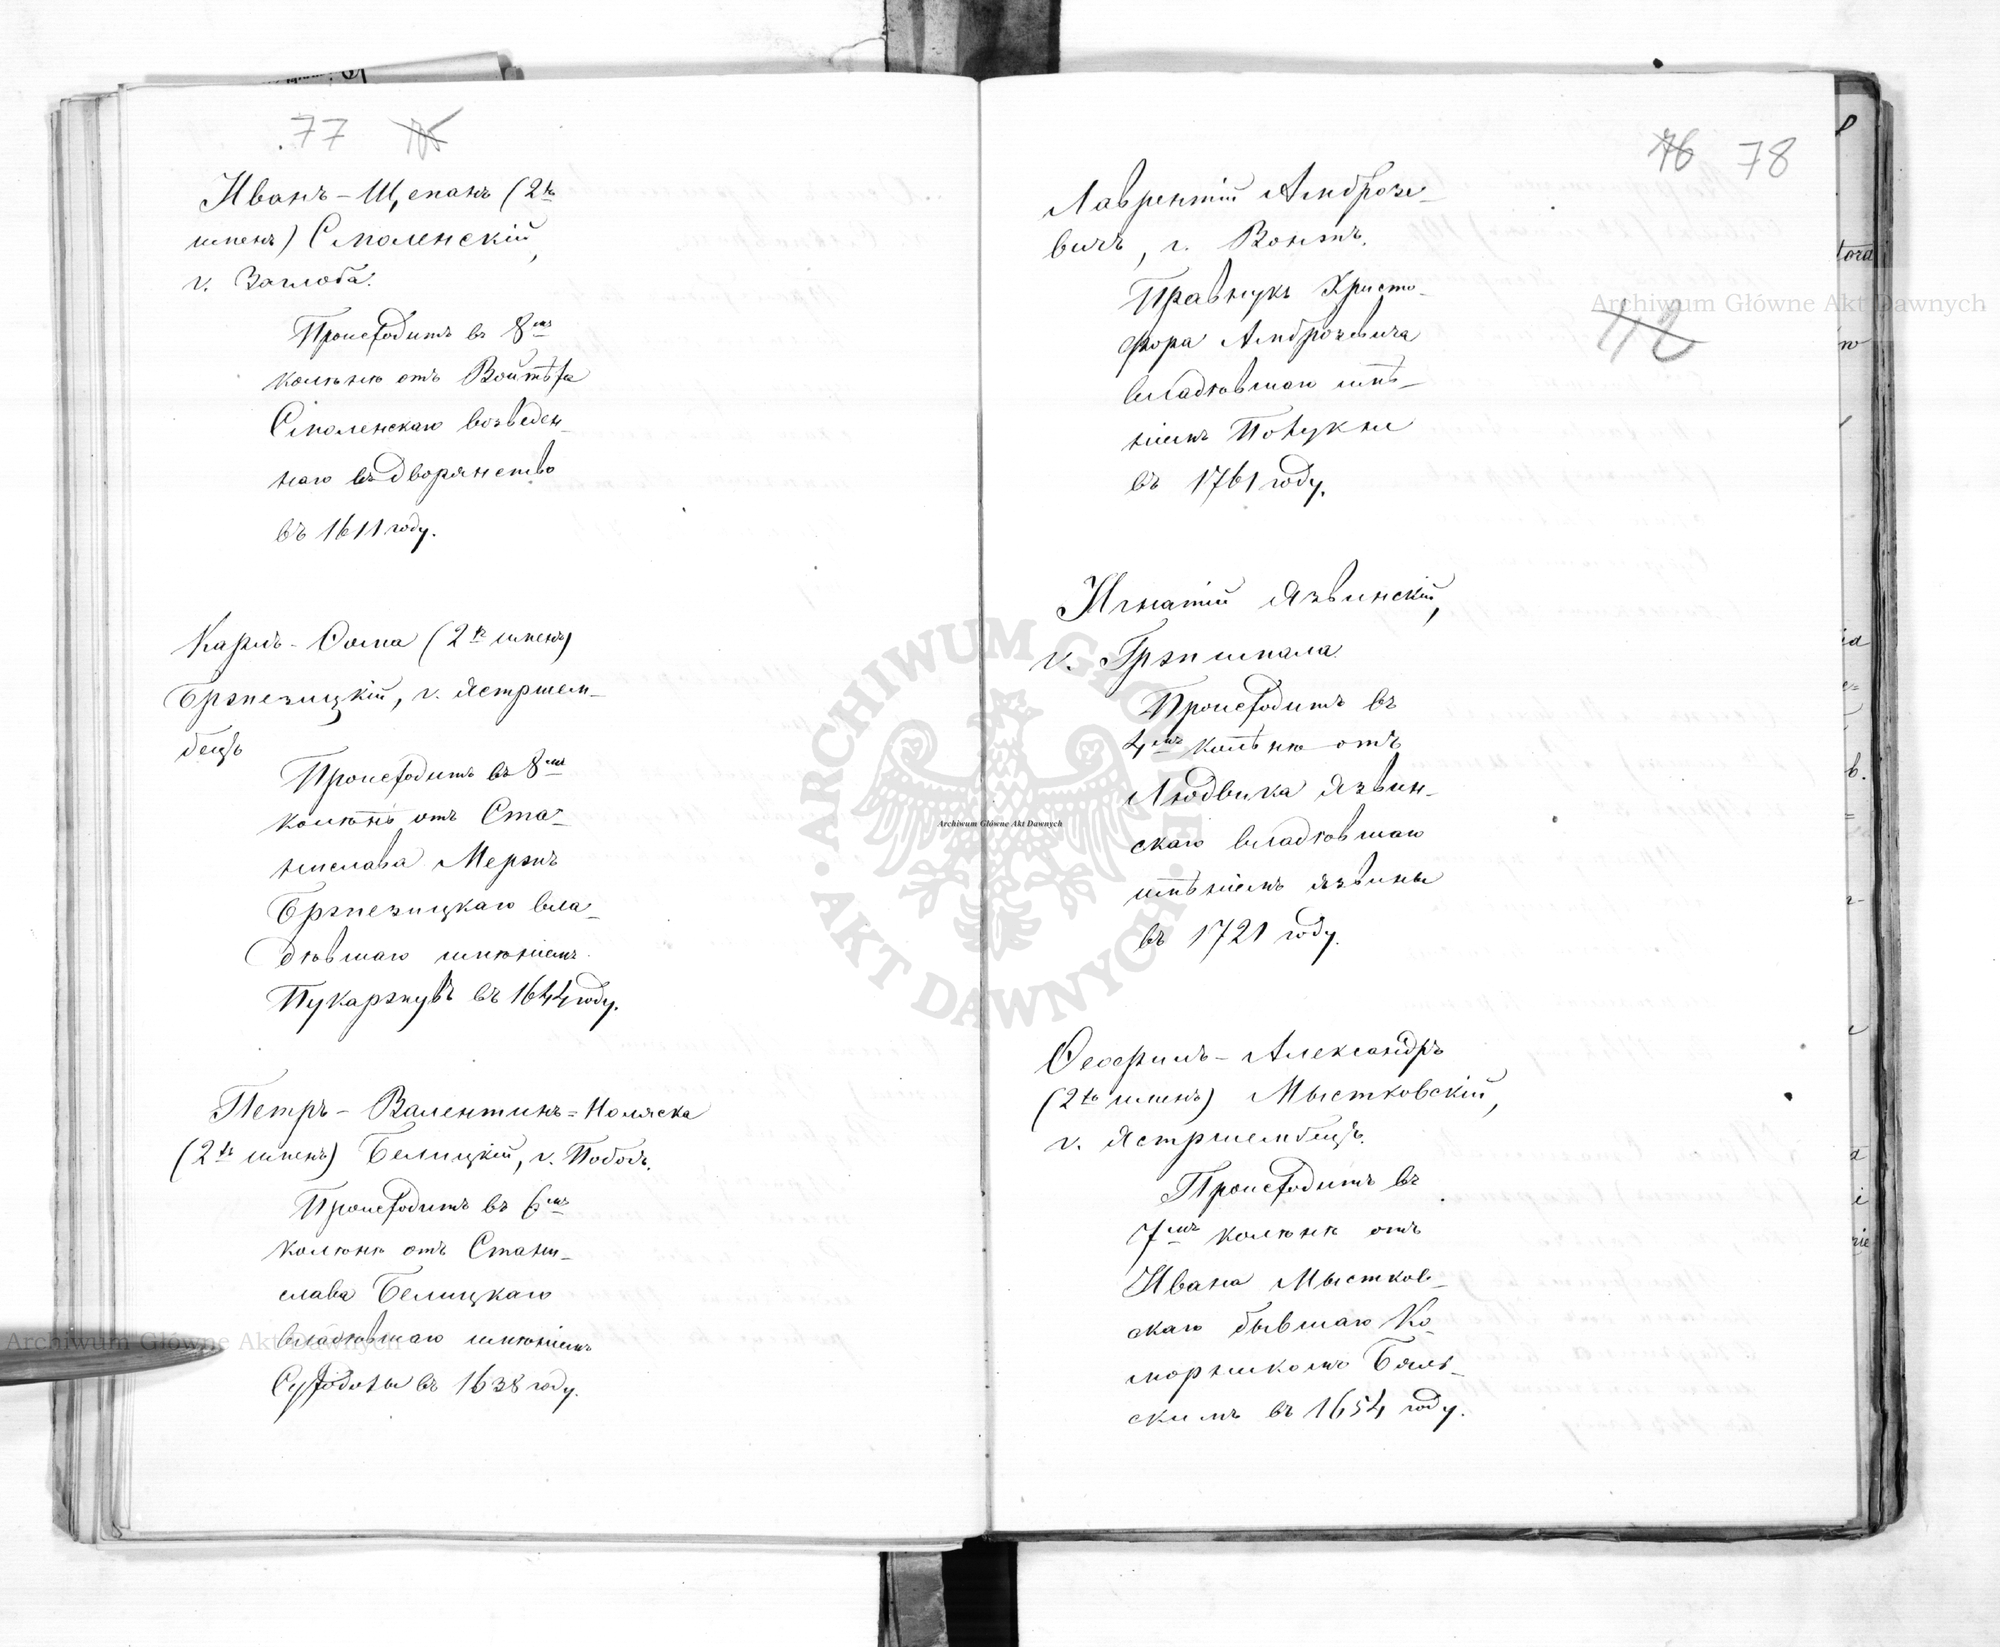 77 75
Иванъ-Щепанъ (2хъ
именъ) Смоленскій,
г. Заглоба.
Происходитъ въ 8мъ
колѣнѣ отъ Войтѣха
Смоленскаго возведен-
наго въ дворянство
въ 1611 году.
Карлъ-Ѳома (2хъ именъ)
Брзезицкій, г. Ястршем-
бецъ
Происходитъ въ 8мъ
колѣнѣ отъ Ста-
нислава Мерзъ
Брзезицкаго вла-
дѣвшаго имѣніемъ
въ 1644 году.
Петръ-Валентинъ=Поляска
(2хъ именъ) Белицкій, г.
Происходитъ въ 6мъ
колѣнѣ отъ Стани-
слава Белицкаго
владѣвшаго имѣніемъ
въ 1638 году.
76 78
Лаврентій Амброзе-
вичъ, г.
Правнукъ Христо-
фора Амброзевича
владѣвшаго имѣ-
ніемъ
въ 1761 году.
Игнатій Язвинскій,
г. Грзымала.
Происходитъ въ
4мъ колѣнѣ отъ
Людвика Язвин-
скаго владѣвшаго
имѣніемъ Язвины
въ 1721 году.
Ѳеофилъ-Александръ
(2хъ именъ) Мыстковскій,
г. Ястршембецъ.
Происходитъ въ
7мъ колѣнѣ отъ
Ивана Мыстков-
скаго бывшаго Ко-
морникомъ Бѣль-
скимъ въ 1654 году.
Archiwum Główne Akt Dawnych
Archiwum Główne Akt Dawnych
Archiwum Główne Akt Dawnych
ARCHIWUM GŁÓWNE AKT DAWNYCH